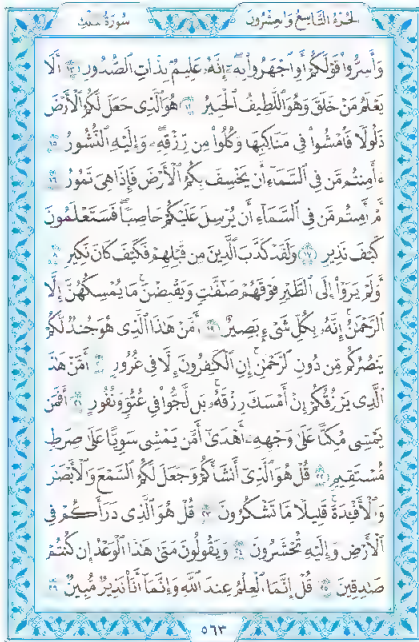 الجزء التاسع والعشرون سورة الملك
وَأَسِرُّوا۟ قَوْلَكُمْ أَوِ ٱجْهَرُوا۟ بِهِۦٓ إِنَّهُۥ عَلِيمٌۢ بِذَاتِ ٱلصُّدُورِ ١٣ أَلَا
يَعْلَمُ مَنْ خَلَقَ وَهُوَ ٱللَّطِيفُ ٱلْخَبِيرُ ١٤ هُوَ ٱلَّذِى جَعَلَ لَكُمُ ٱلْأَرْضَ
ذَلُولًا فَٱمْشُوا۟ فِى مَنَاكِبِهَا وَكُلُوا۟ مِن رِّزْقِهِۦ وَإِلَيْهِ ٱلنُّشُورُ ١٥
ءَأَمِنتُم مَّن فِى ٱلسَّمَآءِ أَن يَخْسِفَ بِكُمُ ٱلْأَرْضَ فَإِذَا هِىَ تَمُورُ ١٦
أَمْ أَمِنتُم مَّن فِى ٱلسَّمَآءِ أَن يُرْسِلَ عَلَيْكُمْ حَاصِبًا فَسَتَعْلَمُونَ
كَيْفَ نَذِيرِ ١٧ وَلَقَدْ كَذَّبَ ٱلَّذِينَ مِن قَبْلِهِمْ فَكَيْفَ كَانَ نَكِيرِ ١٨
أَوَلَمْ يَرَوْا۟ إِلَى ٱلطَّيْرِ فَوْقَهُمْ صَٰٓفَّٰتٍ وَيَقْبِضْنَ مَا يُمْسِكُهُنَّ إِلَّا
ٱلرَّحْمَٰنُ إِنَّهُۥ بِكُلِّ شَىْءٍۭ بَصِيرٌ ١٩ أَمَّنْ هَٰذَا ٱلَّذِى هُوَ جُندٌ لَّكُمْ
يَنصُرُكُم مِّن دُونِ ٱلرَّحْمَٰنِ إِنِ ٱلْكَٰفِرُونَ إِلَّا فِى غُرُورٍ ٢٠ أَمَّنْ هَٰذَا
ٱلَّذِى يَرْزُقُكُمْ إِنْ أَمْسَكَ رِزْقَهُۥ بَل لَّجُّوا۟ فِى عُتُوٍّ وَنُفُورٍ ٢١ أَفَمَن
يَمْشِى مُكِبًّا عَلَىٰ وَجْهِهِۦٓ أَهْدَىٰٓ أَمَّن يَمْشِى سَوِيًّا عَلَىٰ صِرَٰطٍ
مُّسْتَقِيمٍ ٢٢ قُلْ هُوَ ٱلَّذِىٓ أَنشَأَكُمْ وَجَعَلَ لَكُمُ ٱلسَّمْعَ وَٱلْأَبْصَٰرَ
وَٱلْأَفْـِٔدَةَ قَلِيلًا مَّا تَشْكُرُونَ ٢٣ قُلْ هُوَ ٱلَّذِى ذَرَأَكُمْ فِى
ٱلْأَرْضِ وَإِلَيْهِ تُحْشَرُونَ ٢٤ وَيَقُولُونَ مَتَىٰ هَٰذَا ٱلْوَعْدُ إِن كُنتُمْ
صَٰدِقِينَ ٢٥ قُلْ إِنَّمَا ٱلْعِلْمُ عِندَ ٱللَّهِ وَإِنَّمَآ أَنَا۠ نَذِيرٌ مُّبِينٌ ٢٦
٥٦٣